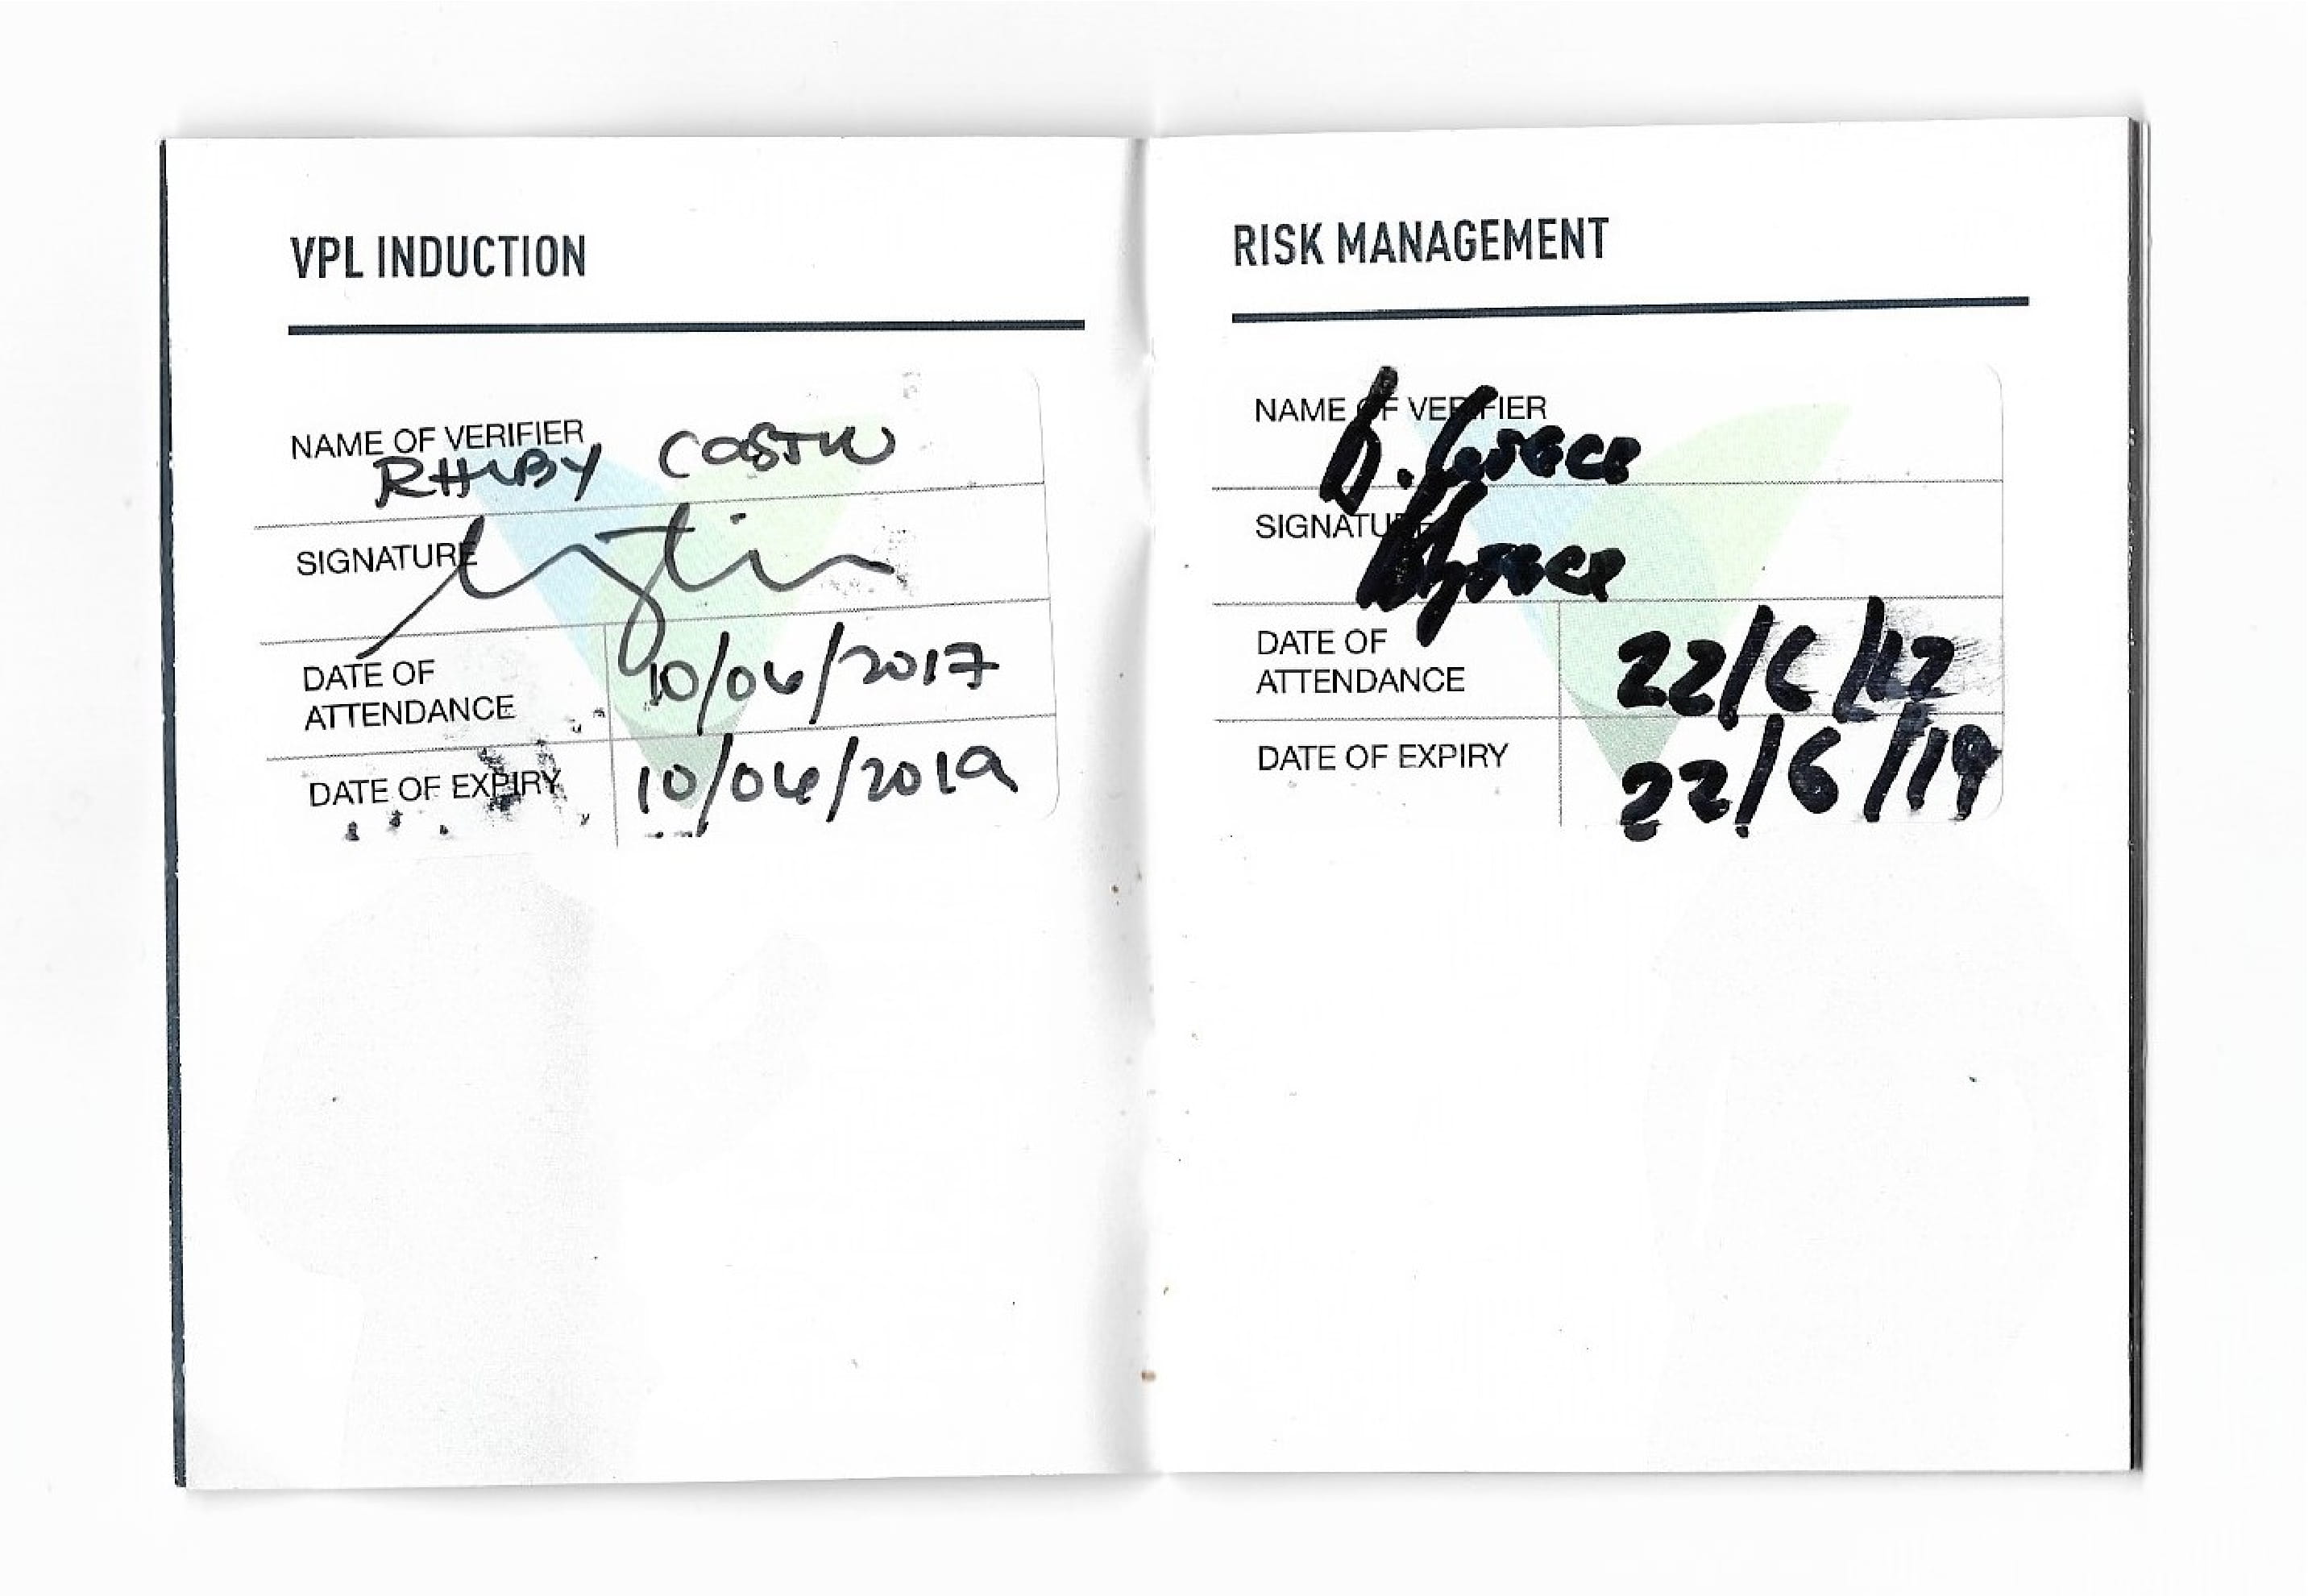 VPL INDUCTION
NAME OF VERIFIER
COSTIN
SIGNATURE
DATE OF
ATTENDANCE
10/06/2017
DATE OF EXPIRY
10/06/2019
RISK MANAGEMENT
NAME OF VERIFIER
SIGNATURE
DATE OF
ATTENDANCE
22/6/17
DATE OF EXPIRY
22/6/19